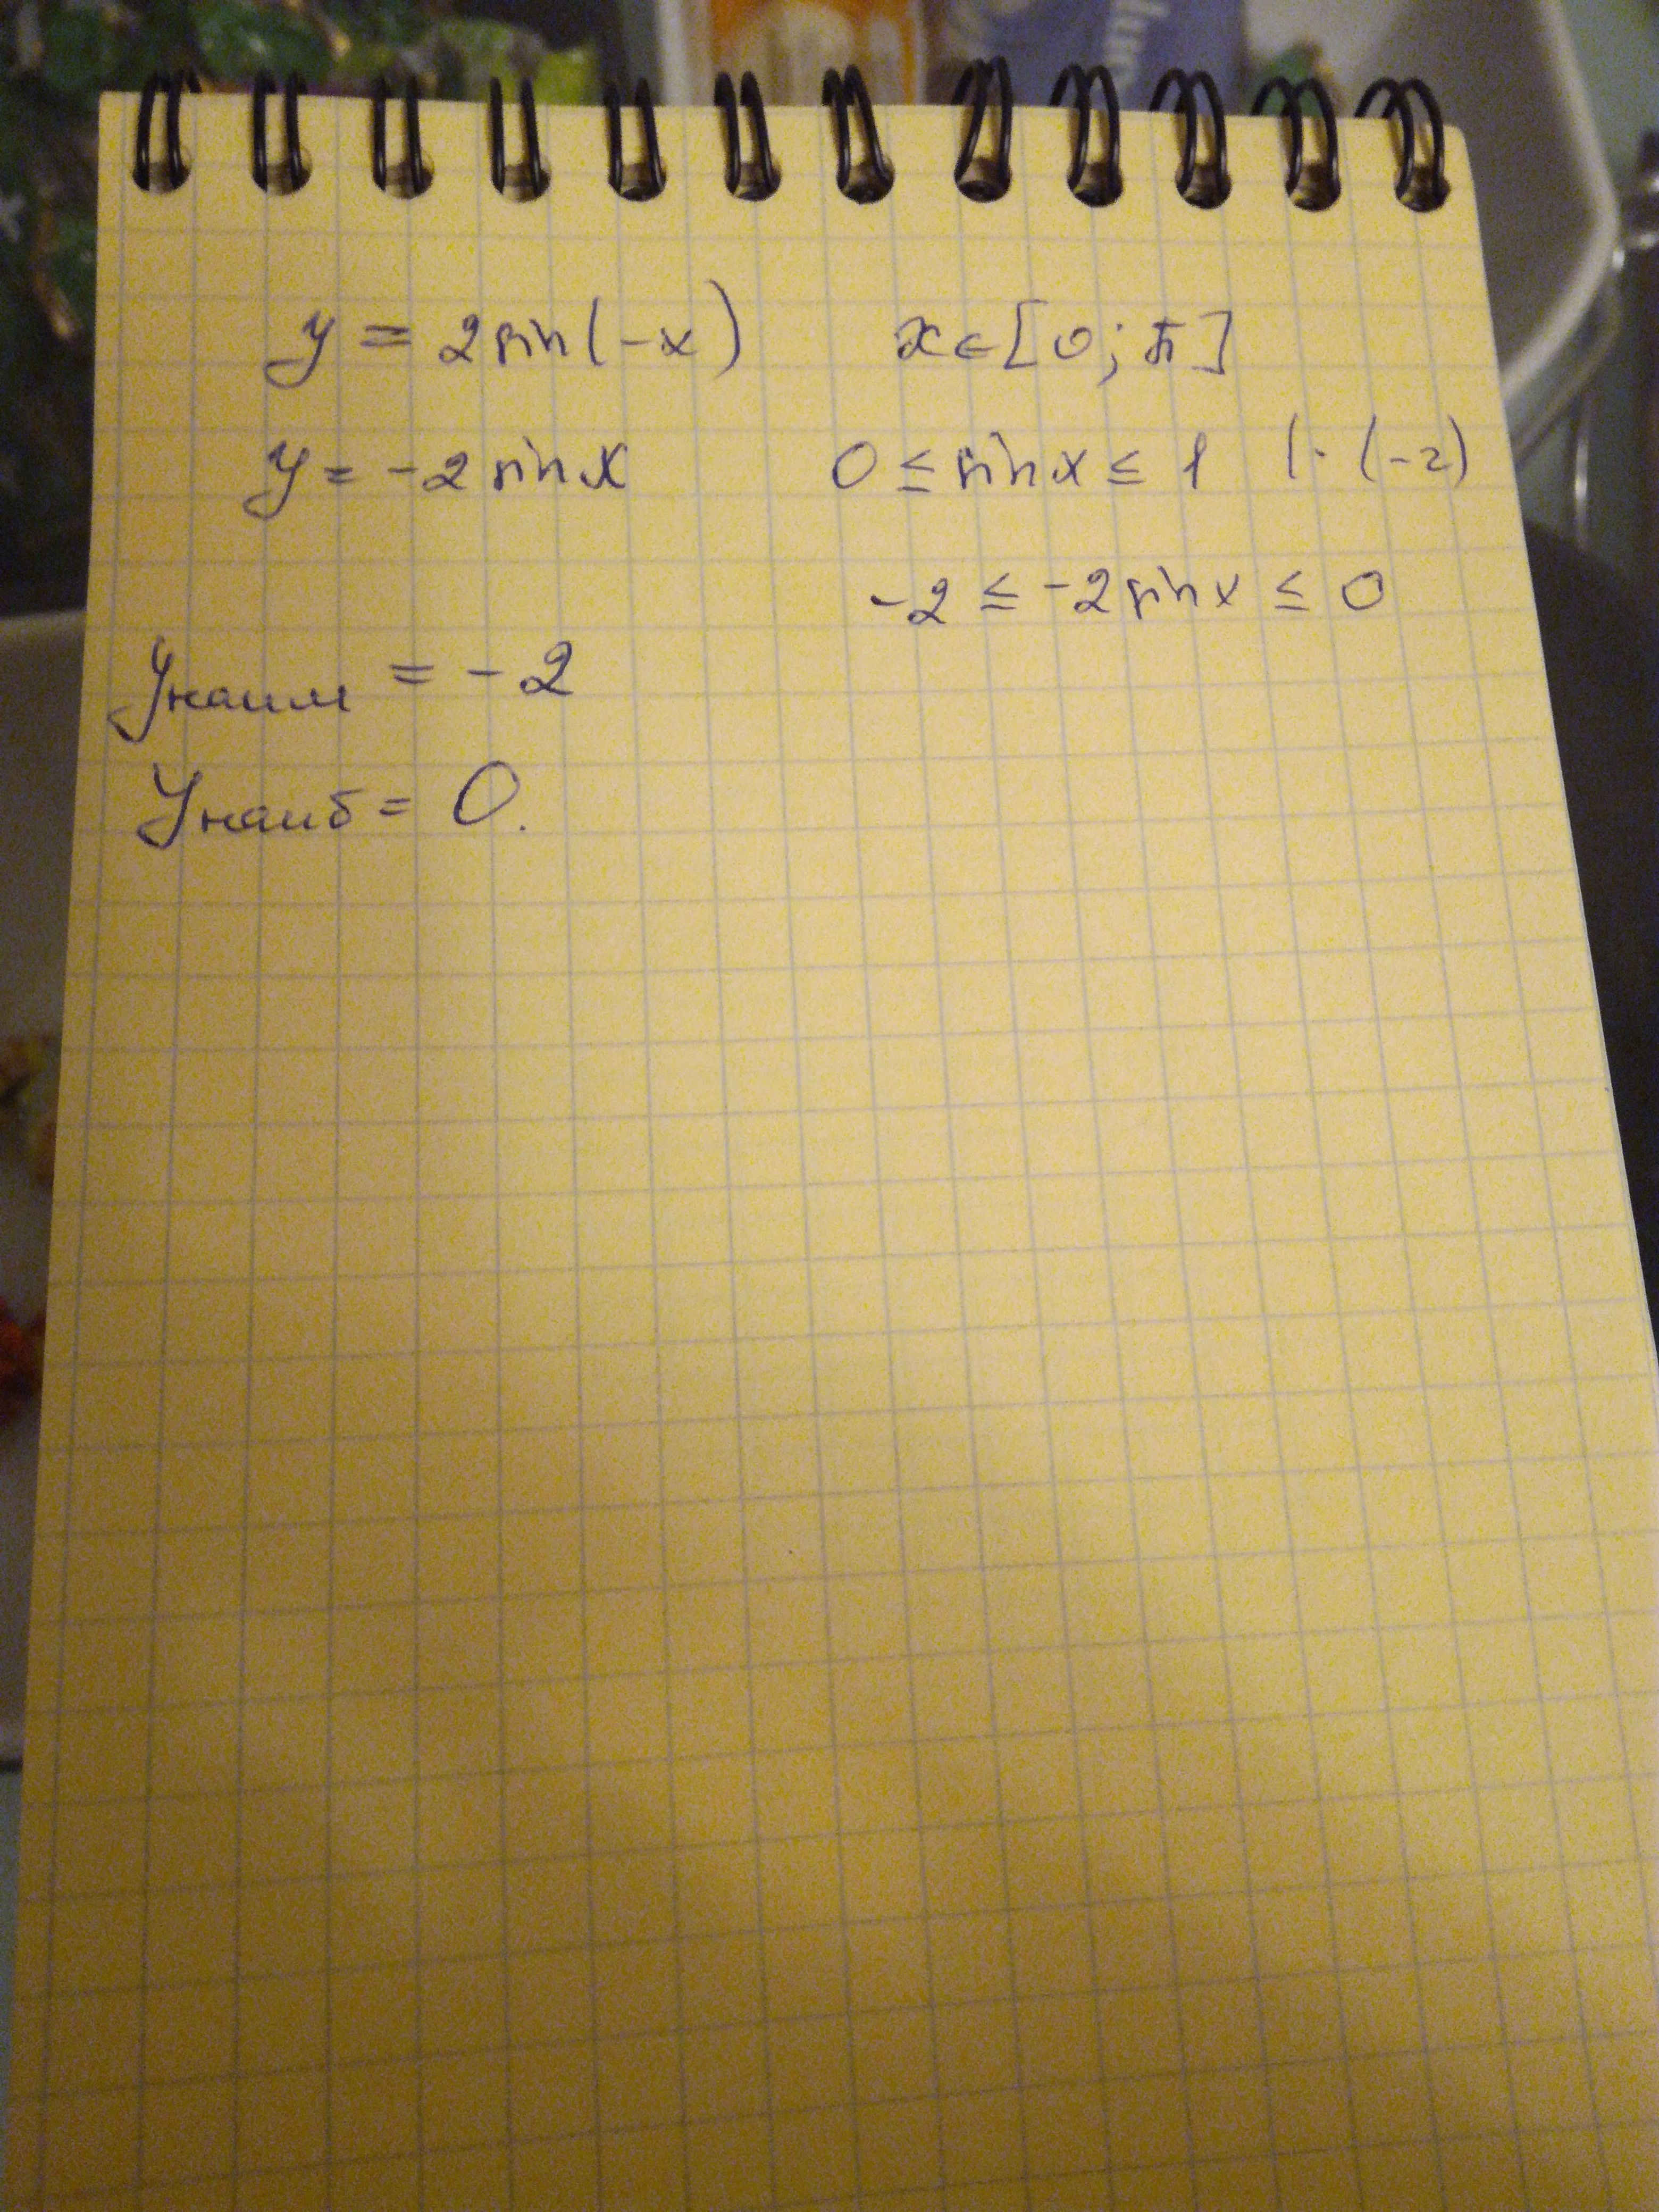 y = 2 sin(-x) x ∈ [0; π]
y = -2 sin x 0 ≤ sin x ≤ 1 | · (-2)
-2 ≤ -2 sin x ≤ 0
yнаим = -2
yнаиб = 0.